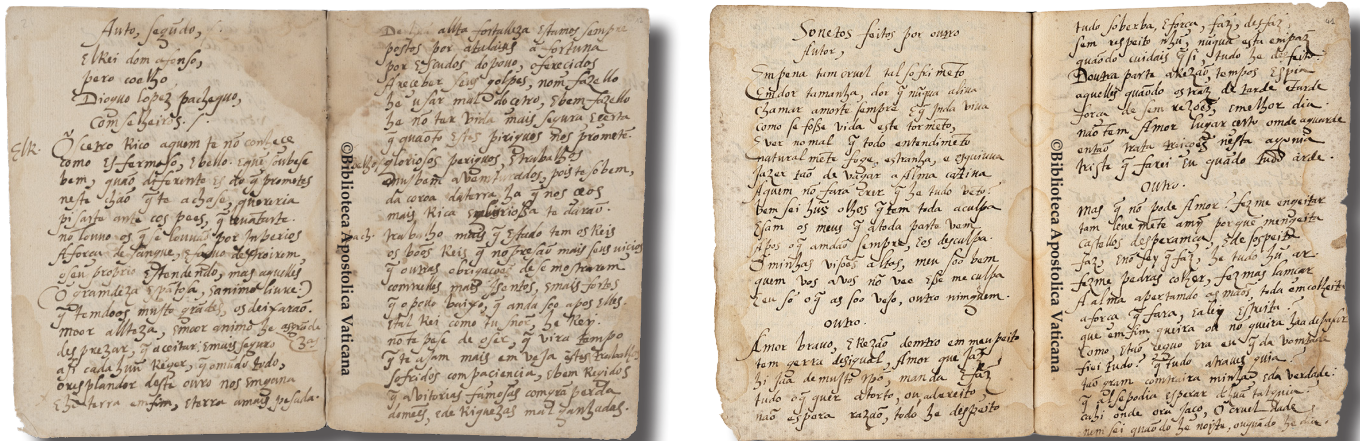 Auto, segũdo,
ElRei dom afonso,
pero coelho
Dioguo lopez pachequo,
Comselheiros.
ElR.
O çetro Rico aquem te nõ conheçe
como Es fermoso, E bello. E quẽ soubese
bem, quão differente Es do q̃ prometes
neste chão q̃ te achase, quereria
pisarte ante cos pees, q̃ levantarte.
nõ louvo os q̃ se louvão por Inperios
A força de sangue,
o seu proprio Estendendo, mas aqueles
O grandeza
q̃ temdo os muito grãdes, os deixarão.
moor allteza, Emoor animo he
desprezar, q̃ aceitar: E mais seguro
a si cada hũu Reger, q̃ o mũdo tudo,
o resplandor deste ouro nos Emgana
E he terra em fim, E terra a mais pesada.
allta fortalleza Estamos sempre
postos por a fortuna
por Escudos do povo, oferecidos
A receber seus golpes, nom fazello
he usar mal do cetro, E bem fazello
he no ter vida mais segura E certa
q̃ quãto Estes piriguos nos promete
gloriosos periguos, E trabalhos
bem aventurados, pois te sobem,
da coroa da terra ha q̃ nos çeos
mais Rica te darão.
trabalho mais q̃ E tudo tem os Reis
os bõos Reis, q̃ no presão mais seus vicios
q̃ outras obrigações de se mostrarem
comredes mais isentos, E mais fortes
q̃ o povo baixo, q̃ anda soo apos Elles.
Estal Rei como tu he Rei.
no te pese de o ser, q̃ vira tempo
q̃ te ajam mais em veja Estes trabalhos
sofridos com paciencia, E bem Regidos
q̃ a vitorias famosas compra perda
domeis, eda Riquezas mal ganhadas.
©Biblioteca Apostolica Vaticana
Sonetos feitos por outro
Autor,
Em pena tam cruel tal sofrimẽto
Em dor tamanha, dor q̃ nũqua aliva
chamar a morte sempre, E q̃ Inda viva
como se fose vida este tormẽto,
E ver no mal q̃ todo entendimẽto
naturalmẽte foge, estranha, e esquiva
fazer tão de vagar a Alma cativa
A quem nõ fara crer q̃ he tudo vẽto.
bem sei hũs olhos q̃ tem toda a culpa
E são os meus q̃ a toda parte vem
Apos o q̃ amão sempre, E os desculpa.
O minhas visões altas, meu soo bem
quem vos a vos nõ vee Ese me culpa
E eu soo o q̃ as soo vejo, outro ninguem.
outro.
Amor bravo, E Rezão demtro em meu peito
tem gerra desigual, Amor que jaz
hi sua de muitos manda E faz
tudo o q̃ quer a torto, ou a dereito,
não espera razão, todo he despeito
tudo soberba, E força, faz, desfaz,
sem respeito nhũ, nũqua esta em paz
quãodo cuidais q̃ si, tudo he desfeito.
Doutra parte a Rezão tempos Espia
aquelles quãodo os traz de tarde e tarde
força de sem rezões, E melhor dia.
não tem Amor lugar certo omde aguarde
emtão trata traições nesta agonia
triste q̃ farei Eu quãdo tudo arde.
outro.
mas q̃ nõ pode Amor? fezme engeitar
tam levemẽte a my porque mengeita
castellos desperamça E de sospeita
faz, E nõ sey q̃ faz, he tudo hũ ar.
fezme pedras colher, fezmas lamçar
A alma apertando as mãos, toda emcolheita
a força q̃ fara, ha ley Estreita
que em fim queira ou nõ queira ha a de pasar
Como, E tudo nega Era eu q̃ da vontade
fiei tudo? q̃ tudo atraves guia
tão gram contraira minha, E da verdade:
q̃ al se podia esperar de tua valya
cahi onde ora jaço, O cruel Idade
nem sei quãodo he noite, ou quãodo he dia.
©Biblioteca Apostolica Vaticana